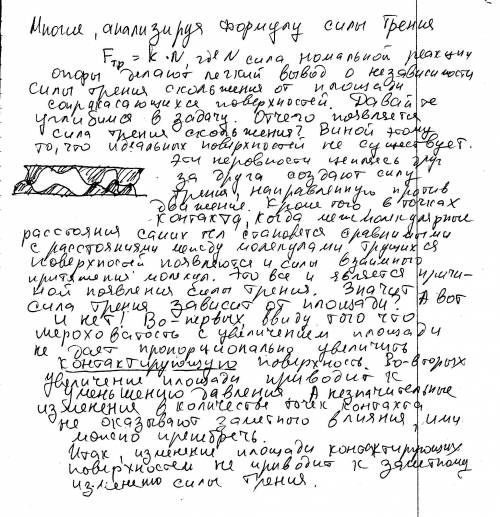 Многие, анализируя формулу силы трения
Fтр = k · N, где N сила номальной реакции
опоры делают легкий вывод о независимости
силы трения скольжения от площади
соприкасающихся поверхностей. Давайте
углубимся в задачу. Отчего появляется
сила трения скольжения? Виной этому
то, что идеальных поверхностей не существует.
Эти неровности цепляясь друг
за друга создают силу
трения, направленную против
движения. Кроме того в точках
контакта, когда межмолекулярные
расстояния самих тел становятся сравнимыми
с расстояниями между молекулами, трущихся
поверхностей появляются и силы взаимного
притяжения молекул. Это все и является причи-
ной появления силы трения. Значит
сила трения зависит от площади? А вот
и нет. Во-первых ввиду того что
шероховатость с увеличением площади
не дает пропорционально увеличить
контактирующую поверхность. Во-вторых
увеличение площади приводит к
уменьшению давления. А незначительные
изменения в количестве точек контакта
не оказывают заметного влияния, ими
можно пренебречь.
Итак, изменение площади контактирующих
поверхностей не приводит к заметному
изменению силы трения.